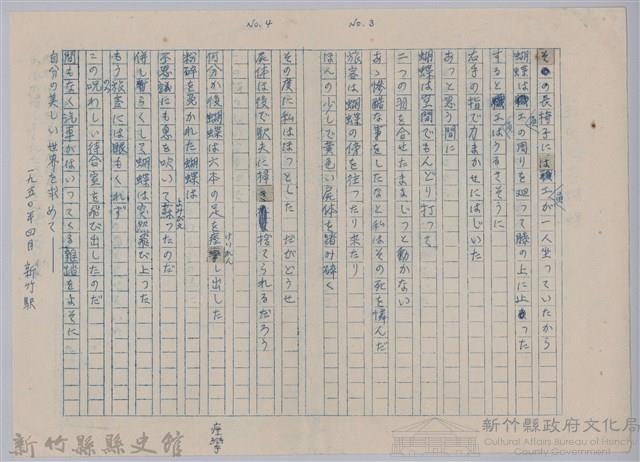 No.3
その長椅子には職工が一人坐っていたから
蝴蝶は職工の周りを廻って膝の上に止まった
すると職工はうるさそうに
右手の指で力まかせにはじいた
あっと思う間に
蝴蝶は空間でもんどり打って
二つの羽を合せたままじっと動かない
あゝ惨酷な事をしたなと私はその死を憐んだ
旅客は蝴蝶の傍を往ったり来たり
ほんの少しで黄色い屍体を踏み砕く
No.4
その度に私ははっとした だがどうせ
屍体は後で駅夫に掃き捨てられるだろう
何分か後蝴蝶は六本の足を痙攣し出した
けいれん
粉砕を免かれた蝴蝶は
不思議にも息を吹いて蘇ったのだ
よみがえ
併し暫らくして蝴蝶は突然飛び上った
もう旅客には眼もくれず
この呪わしい待合室を飛び出したのだ
間もなく汽車がはいってくる雑踏をよそに
自分の美しい世界を求めて——
一九五〇年四月 新竹駅
痙攣
新竹縣縣史館
新竹縣政府文化局
Cultural Affairs Bureau of Hsinchu
County Government